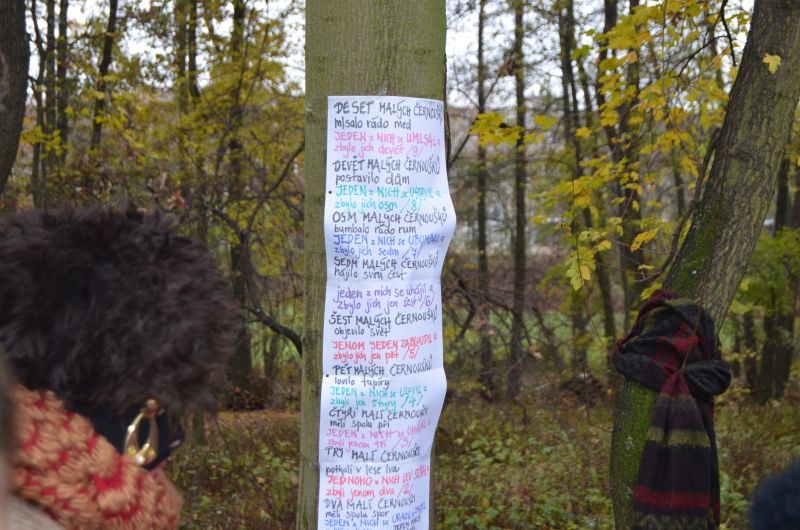 DESET MALÝCH ČERNOUŠKŮ
mlsalo rádo med
JEDEN z NICH se UMLSAL a
zbylo jich devět /9/
DEVĚT MALÝCH ČERNOUŠKŮ
postavilo dům
JEDEN z NICH se a
zbylo jich osm /8/
OSM MALÝCH ČERNOUŠKŮ
bumbalo rádo rum
JEDEN z NICH se UBUMBAL a
zbylo jich sedm /7/
SEDM MALÝCH ČERNOUŠKŮ
hájilo svou čest
jeden z nich se uhájil a
zbylo jich jen šest /6/
ŠEST MALÝCH ČERNOUŠKŮ
objevilo svět
JENOM JEDEN ZABLOUDIL a
zbylo jich jen pět /5/
PĚT MALÝCH ČERNOUŠKŮ
lovilo tapíry
JEDEN z NICH se ULOVIL a
zbyli jen štyry /4/
ČTYŘI MALÍ ČERNOUŠCI
měli spolu při
JEDEN z NICH se a
zbyli jenom tři /3/
TŘI MALÍ ČERNOUŠCI
potkali v lese lva
JEDNOHO z NICH LEV SEŽRAL a
zbyli jenom dva /2/
DVA MALÍ ČERNOUŠCI
měli spolu spor
JEDEN z NICH se